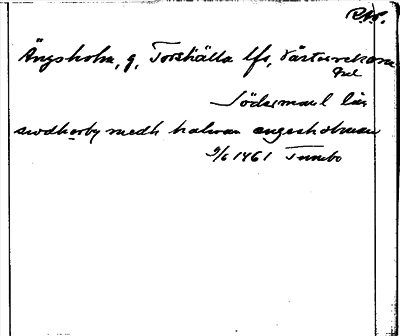 RAP.
Ängsholm, g, Torshälla lfs, Västerrekarne
Söderman l län
swdherby medh halwan angesholmen
9/6 1461 Tumbo